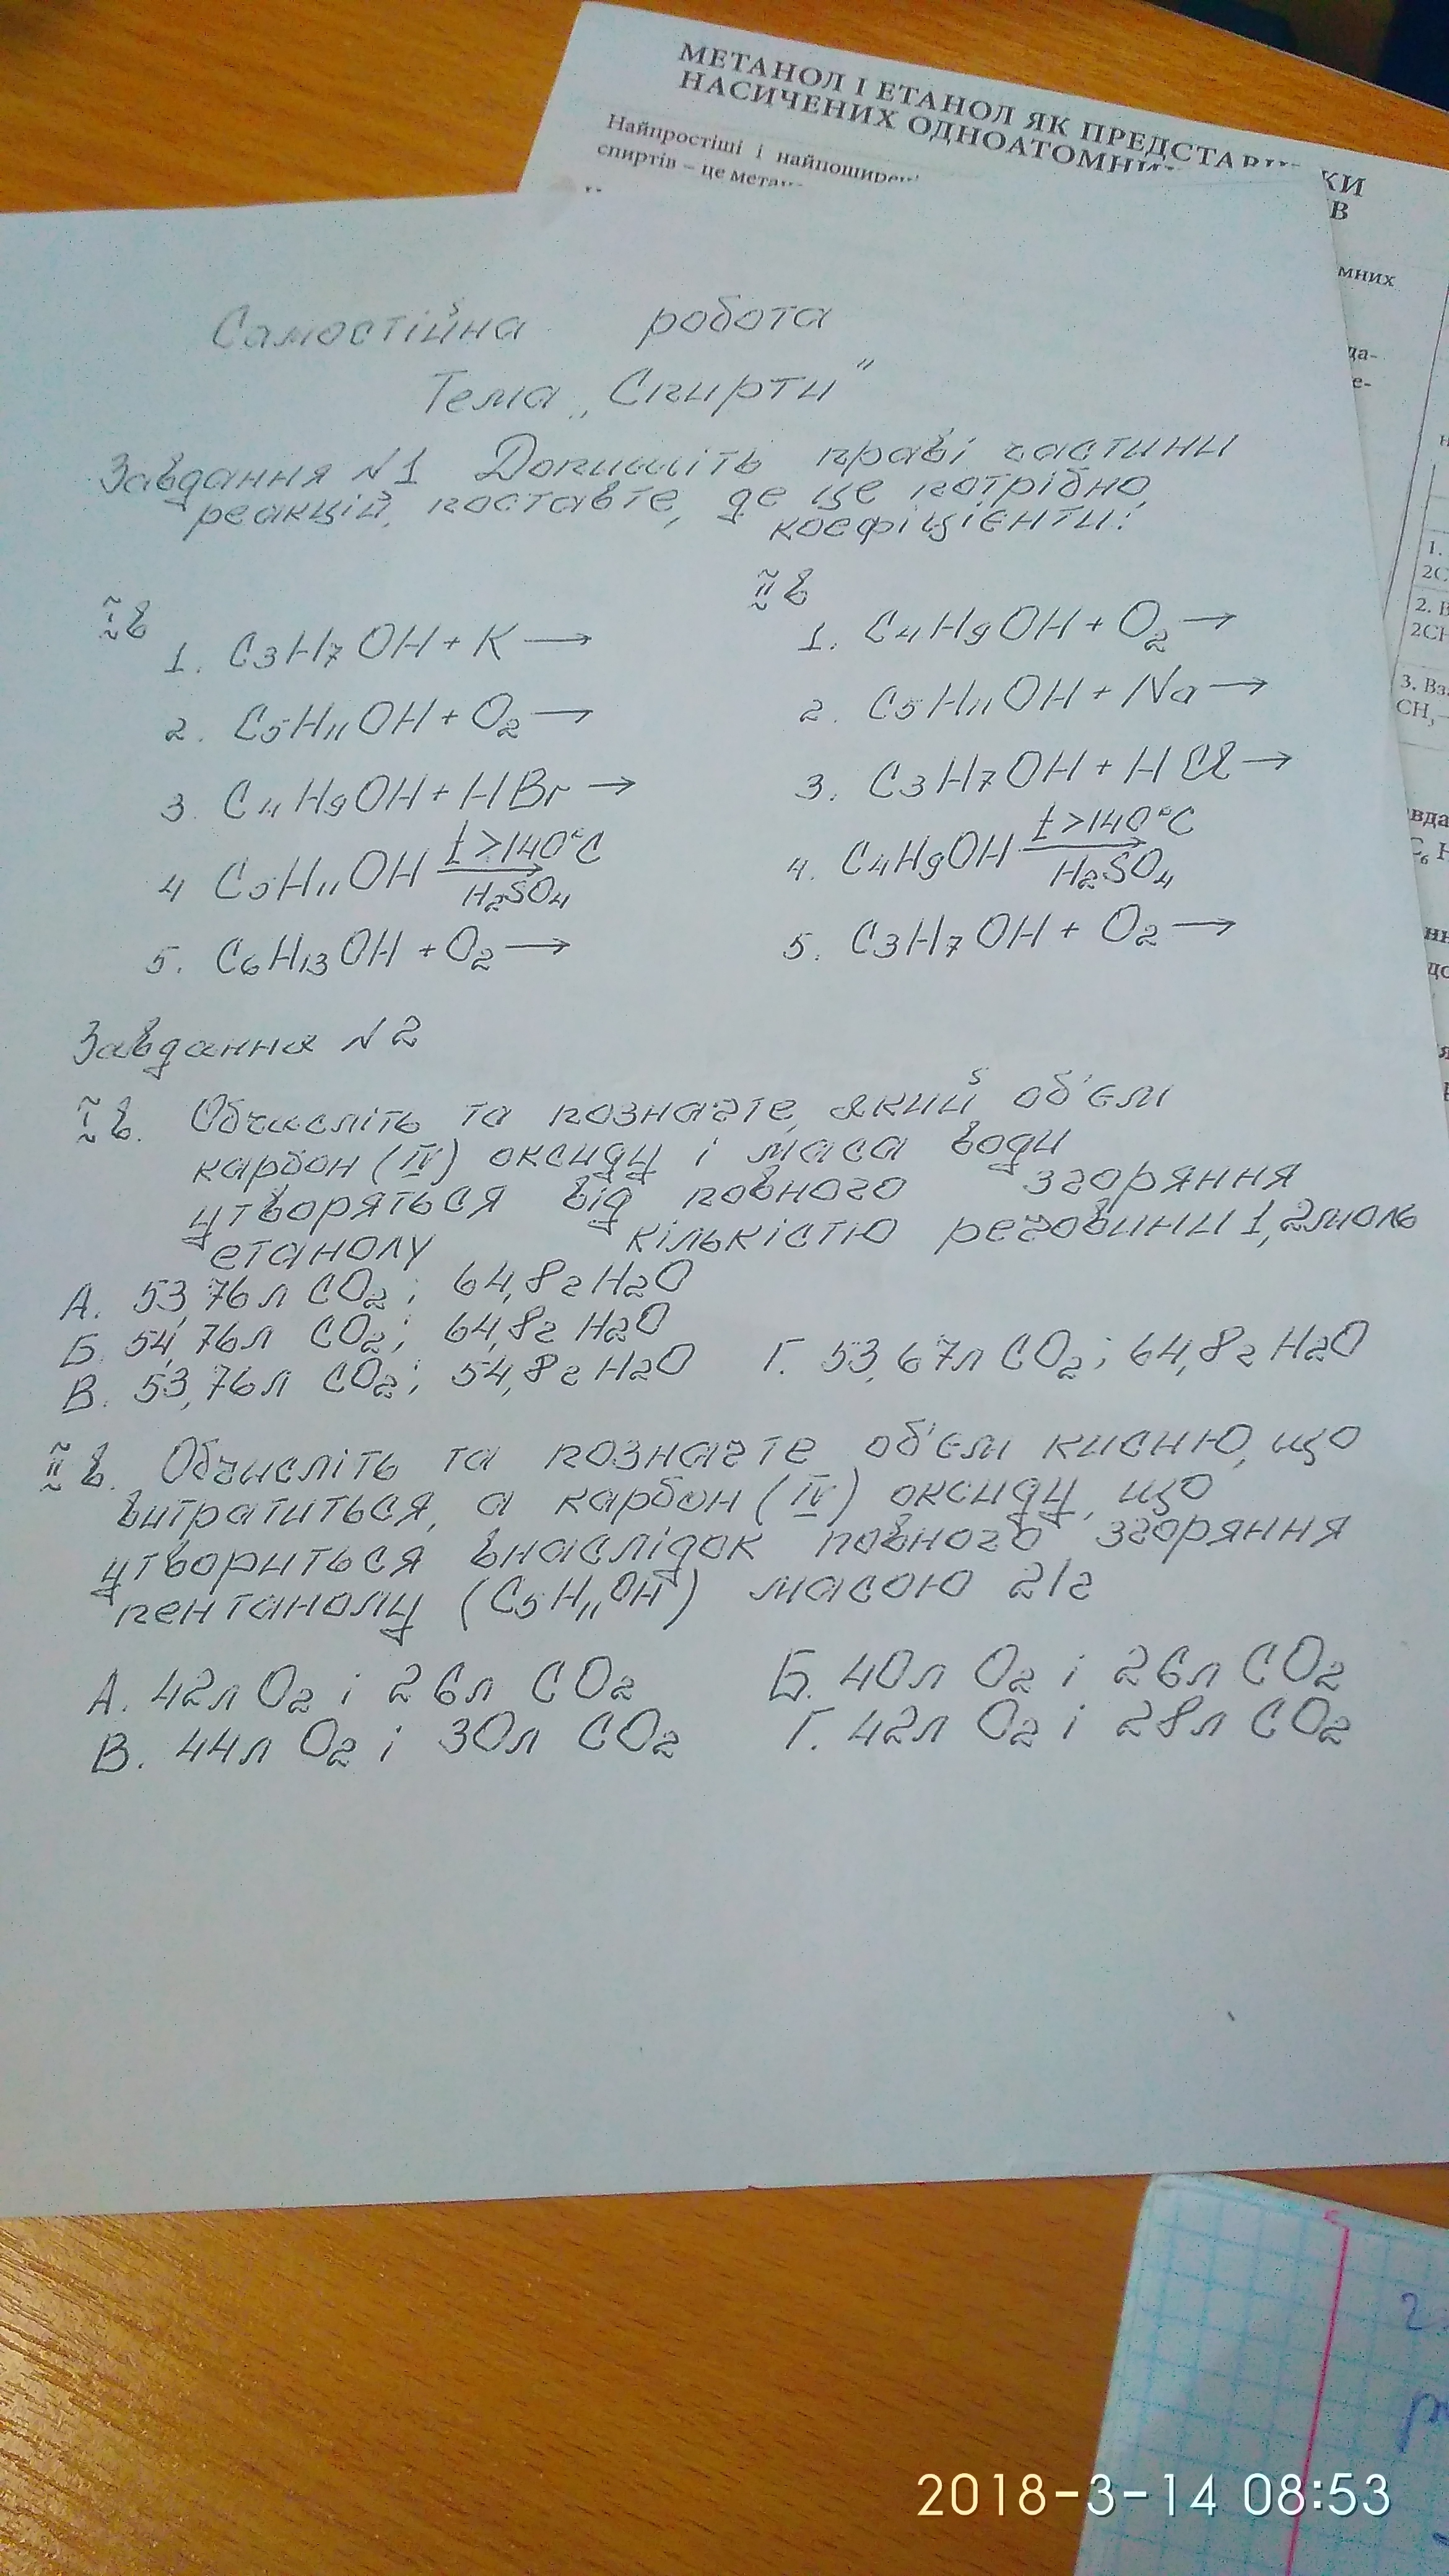 МЕТАНОЛ І ЕТАНОЛ ЯК
НАСИЧЕНИХ
КИ
В
Найпростіші і
спиртів – це
мних
да-
е-
Самостійна робота
Тема „Спирти"
Завдання N1 Допишіть праві частини
реакцій, поставте, де це потрібно,
коефіцієнти:
I в
1. C3H7OH + K →
2. C5H11OH + O2 →
3. C4H9OH + HBr →
4 C5H11OH t >140°C → H2SO4
5. C6H13OH + O2 →
II в
1. C4H9OH + O2 →
2. C5H11OH + Na →
3. C3H7OH + HCl →
4. C4H9OH t >140°C → H2SO4
5. C3H7OH + O2 →
Завдання N2
I в. Обчисліть та позначте, який об'єм
карбон (IV) оксиду і маса води
утворяться від повного згоряння
етанолу кількістю речовини 1,2 моль
А. 53,76л CO2; 64,8г H2O
Б. 54,76л CO2; 64,8г H2O
В. 53,76л CO2; 54,8г H2O Г. 53,67л CO2; 64,8г H2O
II в. Обчисліть та позначте об'єм кисню, що
витратиться, а карбон (IV) оксиду, що
утвориться внаслідок повного згоряння
пентанолу (C5H11OH) масою 21г
А. 42л O2 і 26л CO2 Б. 40л O2 і 26л CO2
В. 44л O2 і 30л CO2 Г. 42л O2 і 28л CO2
1.
2C
2. В
2CH
3. Вз
CH3–
2018-3-14 08:53